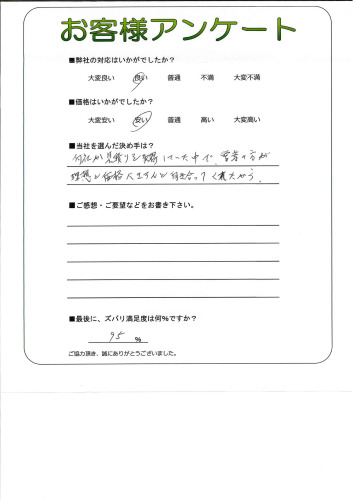 お客様アンケート
■弊社の対応はいかがでしたか?
大変良い 良い 普通 不満 大変不満
■価格はいかがでしたか?
大変安い 安い 普通 高い 大変高い
■当社を選んだ決め手は?
他社から見積りを い中で、営業の方が
理想と価格 向き合ってくれたから。
■ご感想・ご要望などをお書き下さい。
■最後に、ズバリ満足度は何%ですか?
95 %
ご協力頂き、誠にありがとうございました。